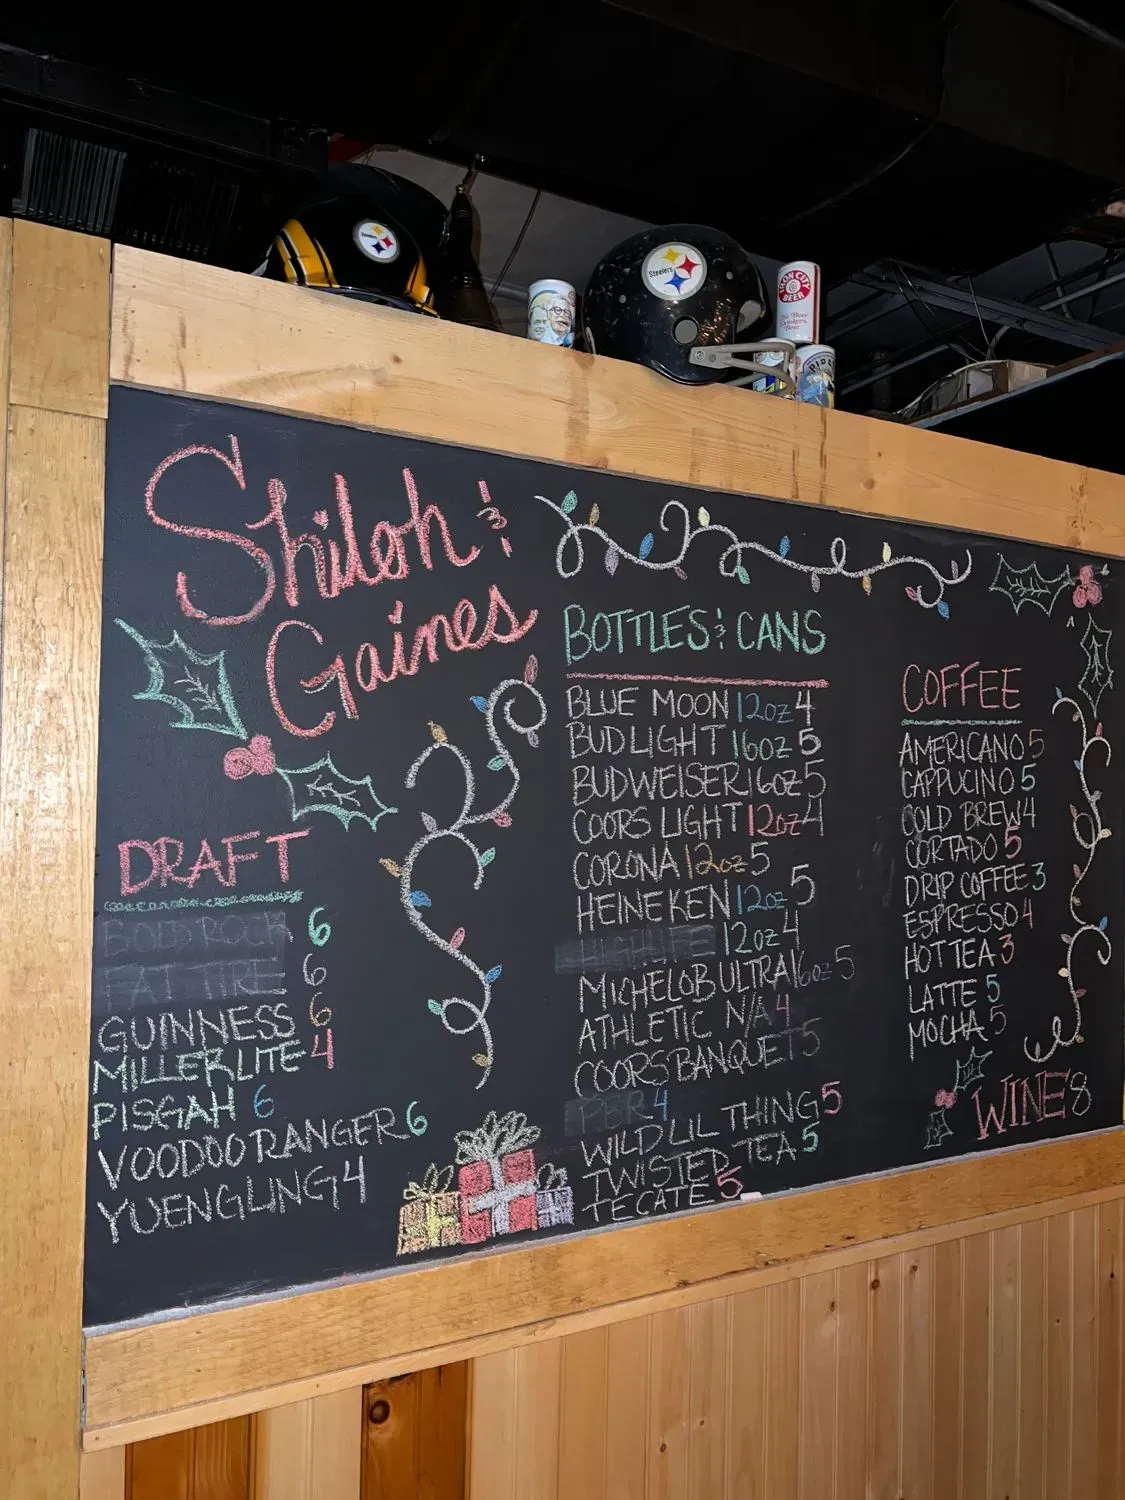 Steelers
Steelers
IRON CITY
BEER
The Beer
Drinkers
Beer
Shiloh &
Gaines
DRAFT
BOLD ROCK 6
FAT TIRE 6
GUINNESS 6
MILLER LITE 4
PISGAH 6
VOODOO RANGER 6
YUENGLING 4
BOTTLES & CANS
BLUE MOON 12oz 4
BUDLIGHT 16oz 5
BUDWEISER 16oz 5
COORS LIGHT 12oz 4
CORONA 12oz 5
HEINEKEN 12oz 5
HIGHLIFE 12oz 4
MICHELOB ULTRA 16oz 5
ATHLETIC N/A 4
COORS BANQUET 5
PBR 4
WILD LIL THING 5
TWISTED TEA 5
TECATE 5
COFFEE
AMERICANO 5
CAPPUCINO 5
COLD BREW 4
CORTADO 5
DRIP COFFEE 3
ESPRESSO 4
HOT TEA 3
LATTE 5
MOCHA 5
WINE 8